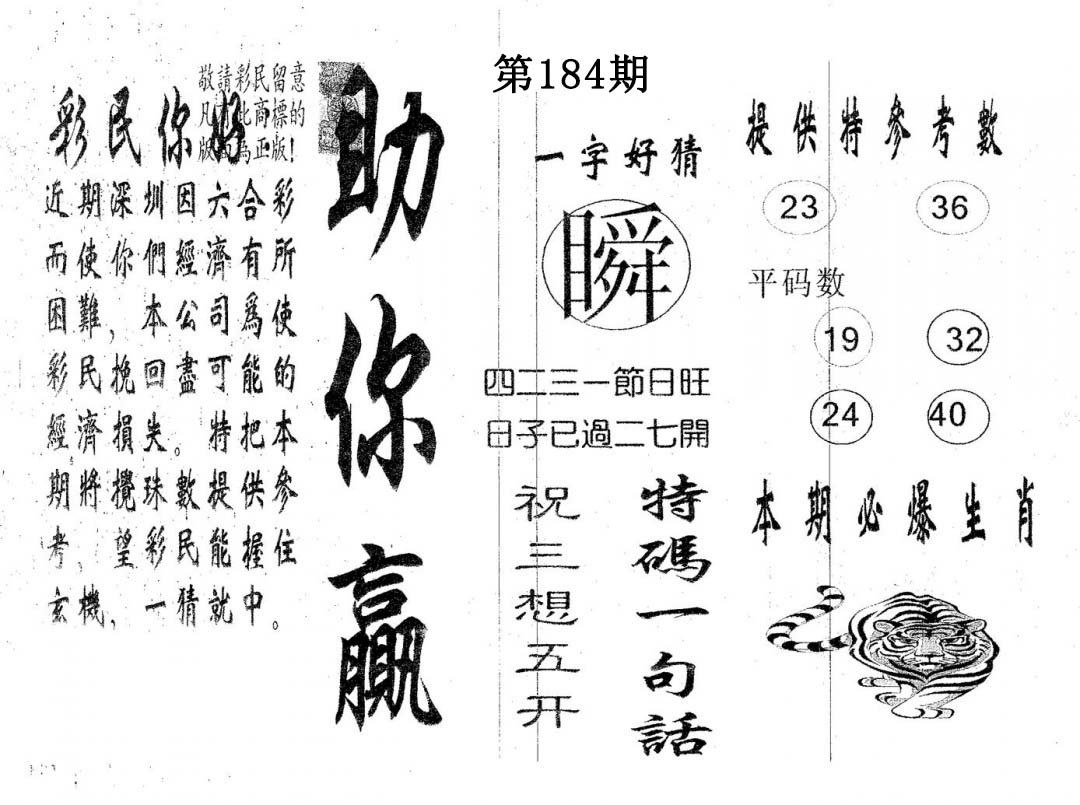 敬請彩民留意
凡　此商標的
版　為正版！
彩民你好
近期深圳因六合彩
而使你們經濟有所
困難，本公司爲使
彩民挽回盡可能的
經濟損失。特把本
期將攪珠數提供參
考，望彩民能握住
玄機，一猜就中。
助你贏
第184期
一字好猜
瞬
四二三一節日旺
日子已過二七開
特碼一句話
祝三想五开
提供特參考數
23 36
平码数
19 32
24 40
本期必爆生肖